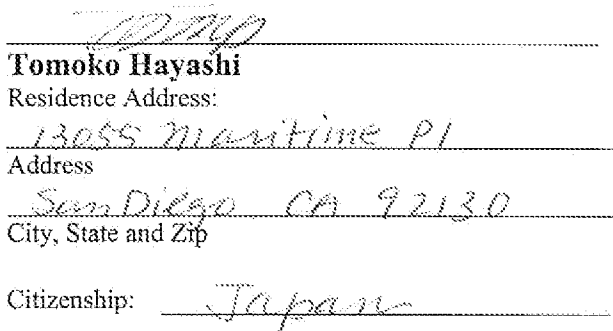 Tomoko Hayashi
Residence Address:
13055 Maritime Pl
Address
San Diego CA 92130
City, State and Zip
Citizenship: Japan